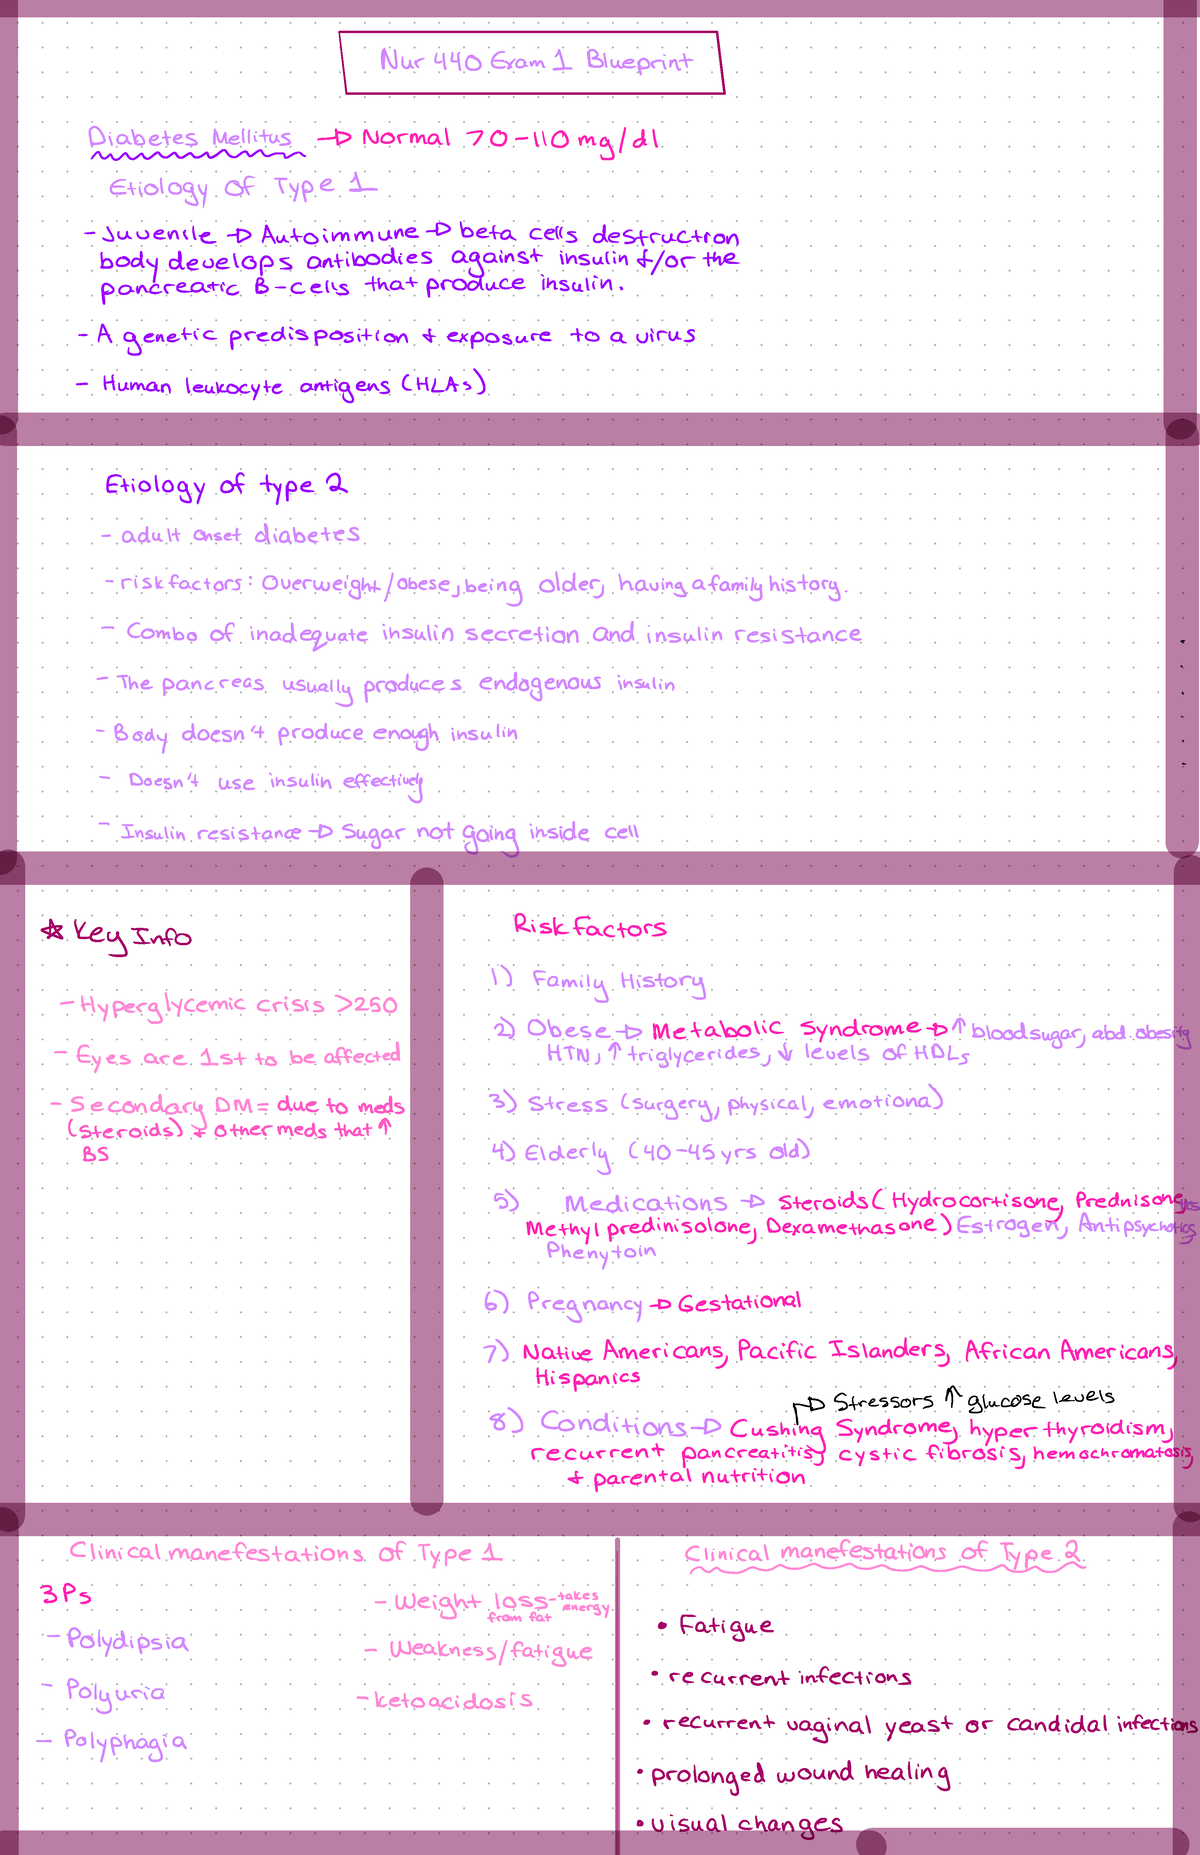 Nur 440 Exam 1 Blueprint
Diabetes Mellitus → Normal 70-110 mg/dl
Etiology of Type 1
- Juvenile → Autoimmune → beta cells destruction
body develops antibodies against insulin &/or the
pancreatic B-cells that produce insulin.
- A genetic predisposition & exposure to a virus
- Human leukocyte antigens (HLAs)
Etiology of type 2
- adult onset diabetes
- risk factors: Overweight/obese, being older, having a family history.
- Combo of inadequate insulin secretion and insulin resistance
- The pancreas usually produces endogenous insulin
- Body doesn't produce enough insulin
- Doesn't use insulin effectively
- Insulin resistance → Sugar not going inside cell
☆ Key Info
- Hyperglycemic crisis >250
- Eyes are 1st to be affected
- Secondary DM = due to meds
(steroids) & other meds that ↑
BS
Risk Factors
1) Family History
2) Obese → Metabolic Syndrome → ↑ blood sugar, abd. obesity
HTN, ↑ triglycerides, ↓ levels of HDLs
3) Stress (surgery, physical, emotiona)
4) Elderly (40-45 yrs old)
5) Medications → Steroids (Hydrocortisone, Prednisone,
Methyl predinisolone, Dexamethasone) Estrogen, Antipsychotics
Phenytoin
6) Pregnancy → Gestational
7) Native Americans, Pacific Islanders, African Americans,
Hispanics
→ Stressors ↑ glucose levels
8) Conditions → Cushing Syndrome, hyperthyroidism,
recurrent pancreatitis, cystic fibrosis, hemochromatosis,
& parental nutrition
Clinical manefestations of Type 1
3 Ps
- Polydipsia
- Polyuria
- Polyphagia
- Weight loss - takes
energy
from fat
- Weakness/fatigue
- ketoacidosis
Clinical manefestations of Type 2
• Fatigue
• recurrent infections
• recurrent vaginal yeast or candidal infections
• prolonged wound healing
• visual changes